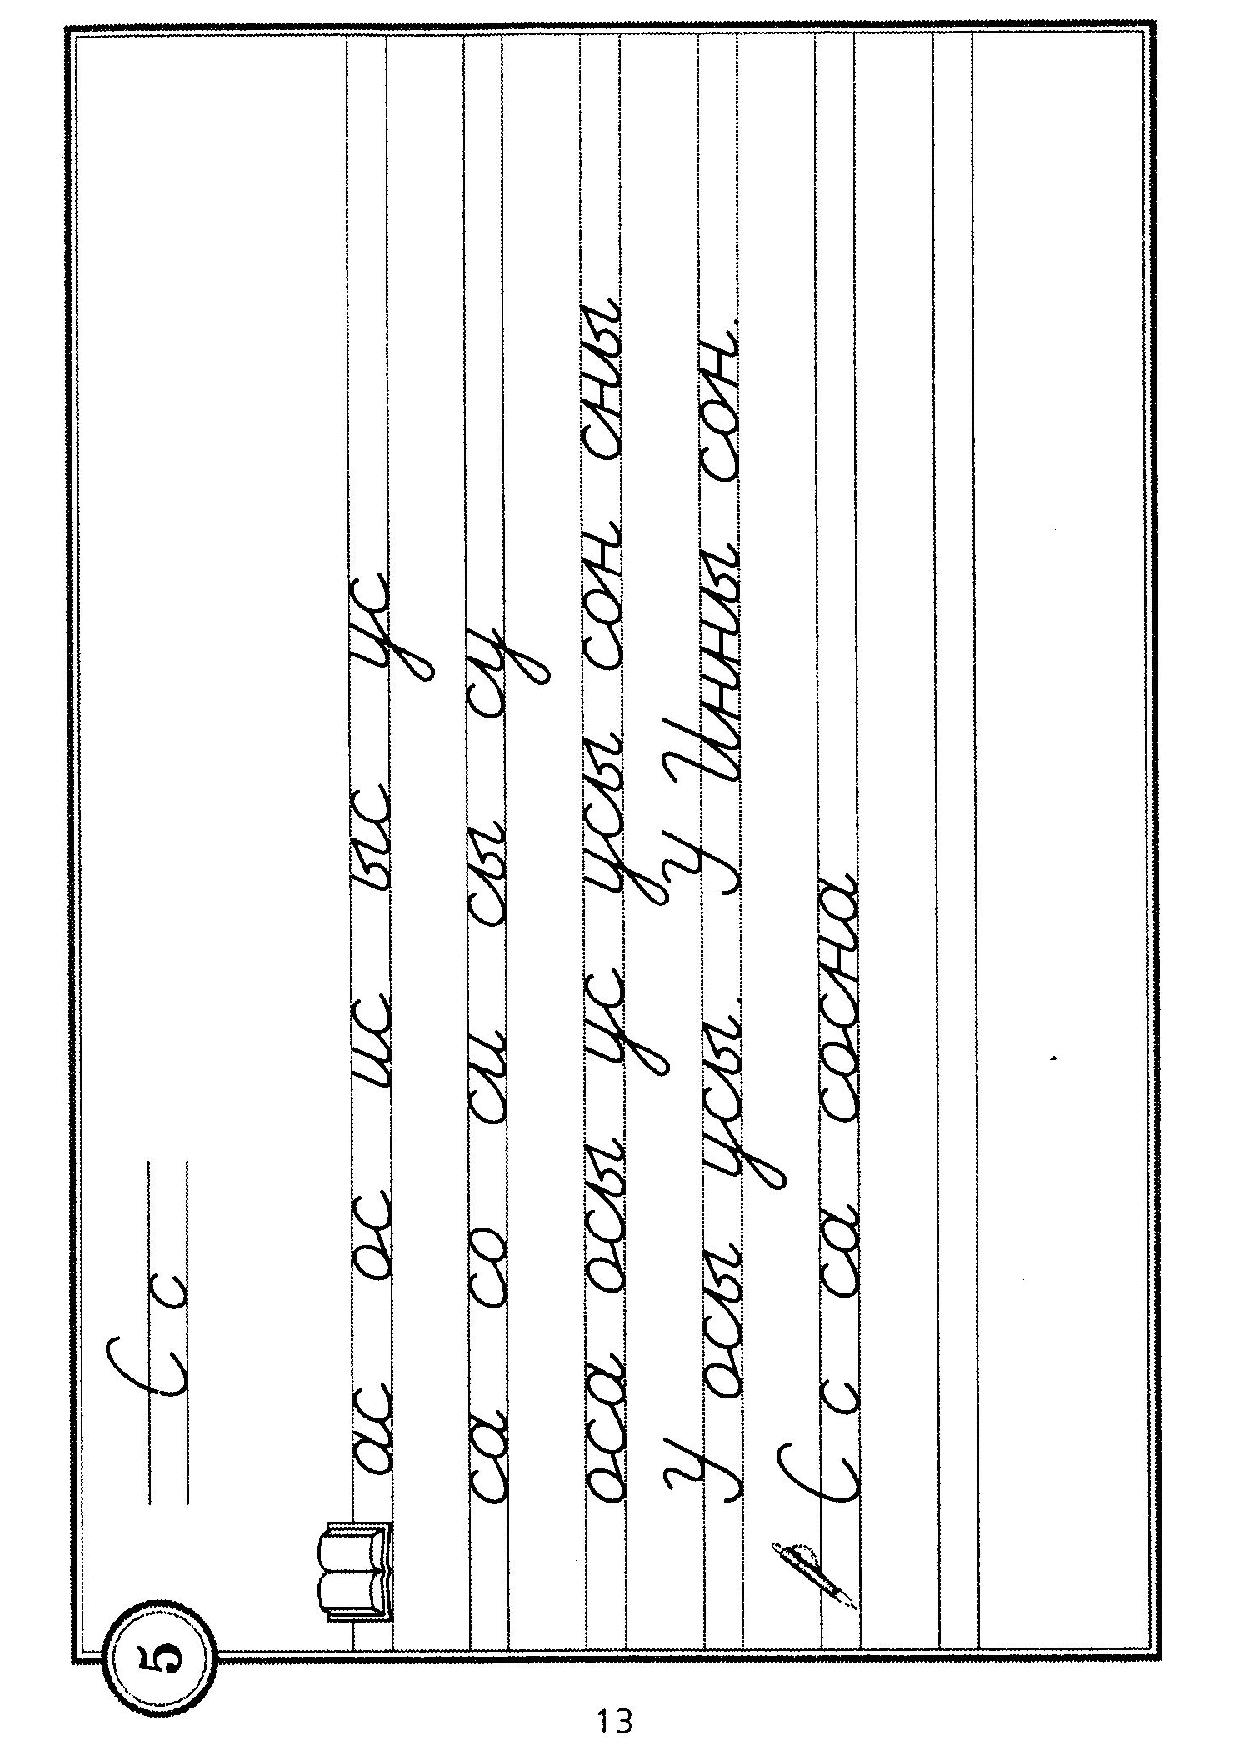 5
С с
ас ос ис ыс ус
са со си сы су
оса осы ус усы сон сны
У осы усы. У Инны сон.
С с са сосна
13